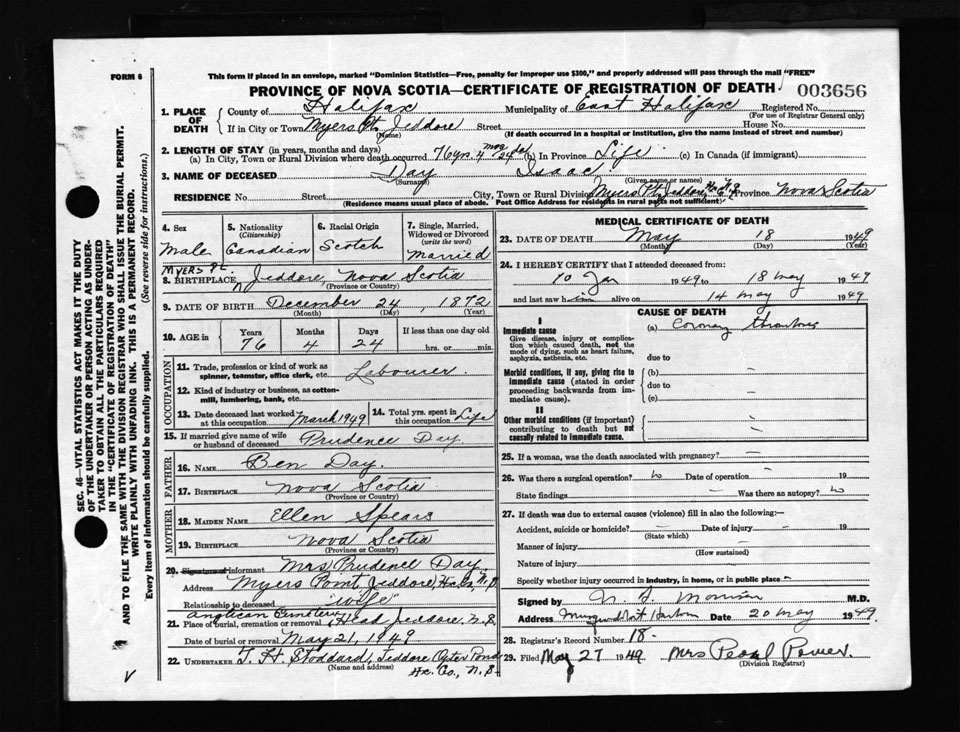 FORM 6
This form if placed in an envelope, marked "Dominion Statistics—Free, penalty for improper use $300," and properly addressed will pass through the mail "FREE"
PROVINCE OF NOVA SCOTIA—CERTIFICATE OF REGISTRATION OF DEATH
003656
1. PLACE OF DEATH County of Halifax Municipality of East Halifax Registered No.
(For use of Registrar General only)
If in City or Town Myers Pt. Jeddore Street House No.
(Name) (If death occurred in a hospital or institution, give the name instead of street and number)
2. LENGTH OF STAY (in years, months and days)
(a) In City, Town or Rural Division where death occurred 76 yrs. 4 mos 24 da (b) In Province Life (c) In Canada (if immigrant)
3. NAME OF DECEASED Day Isaac
(Surname) (Given name or names)
RESIDENCE No. Street City, Town or Rural Division Myers Pt. Jeddore, Province Nova Scotia
(Residence means usual place of abode. Post Office Address for residents in rural parts not sufficient)
4. Sex Male
5. Nationality (Citizenship) Canadian
6. Racial Origin Scotch
7. Single, Married, Widowed or Divorced (write the word) Married
Myers Pt.
8. BIRTHPLACE Jeddore, Nova Scotia
(Province or Country)
9. DATE OF BIRTH December 24, 1872
(Month) (Day) (Year)
10. AGE in Years Months Days If less than one day old
76 4 24 hrs. or min.
OCCUPATION
11. Trade, profession or kind of work as spinner, teamster, office clerk, etc. Labourer.
12. Kind of industry or business, as cotton-mill, lumbering, bank, etc.
13. Date deceased last worked at this occupation March 1949
14. Total yrs. spent in this occupation Life
15. If married give name of wife or husband of deceased Prudence Day.
FATHER
16. NAME Ben Day.
17. BIRTHPLACE Nova Scotia
(Province or Country)
MOTHER
18. MAIDEN NAME Ellen Spears
19. BIRTHPLACE Nova Scotia
(Province or Country)
20. Signature of informant Mrs Prudence Day.
Address Myers Point, Jeddore, Hx. Co., N.S.
Relationship to deceased "wife"
Anglican Cemetery
21. Place of burial, cremation or removal Head Jeddore, N.S
Date of burial or removal May 21, 1949
22. UNDERTAKER T. H. Stoddard, Jeddore Oyster Pond
(Name and address)
Hx. Co., N.S.
MEDICAL CERTIFICATE OF DEATH
23. DATE OF DEATH May 18 1949
(Month) (Day) (Year)
24. I HEREBY CERTIFY that I attended deceased from:
10 Jan 1949 to 18 May 1949
and last saw him alive on 14 May 1949
CAUSE OF DEATH
I
Immediate cause
Give disease, injury or complication which caused death, not the mode of dying, such as heart failure, asphyxia, asthenia, etc.
(a) Coronary thrombosis
due to
Morbid conditions, if any, giving rise to immediate cause (stated in order proceeding backwards from immediate cause).
(b) —
due to
(c) —
II
Other morbid conditions (if important) contributing to death but not causally related to immediate cause.
25. If a woman, was the death associated with pregnancy? —
26. Was there a surgical operation? No Date of operation — 19
State findings — Was there an autopsy? No
27. If death was due to external causes (violence) fill in also the following:—
Accident, suicide or homicide? — Date of injury — 19
(State which)
Manner of injury
(How sustained)
Nature of injury
Specify whether injury occurred in industry, in home, or in public place —
Signed by Morrison M.D.
Address Musquodoboit Harbour Date 20 May 1949
28. Registrar's Record Number 18.
29. Filed May 27 1949 Mrs Pearl Power.
(Division Registrar)
SEC. 46—VITAL STATISTICS ACT MAKES IT THE DUTY
OF THE UNDERTAKER OR PERSON ACTING AS UNDER-
TAKER TO OBTAIN ALL THE PARTICULARS REQUIRED
IN THE "CERTIFICATE OF REGISTRATION OF DEATH"
AND TO FILE THE SAME WITH THE DIVISION REGISTRAR WHO SHALL ISSUE THE BURIAL PERMIT.
WRITE PLAINLY WITH UNFADING INK. THIS IS A PERMANENT RECORD.
Every item of information should be carefully supplied. (See reverse side for instructions.)